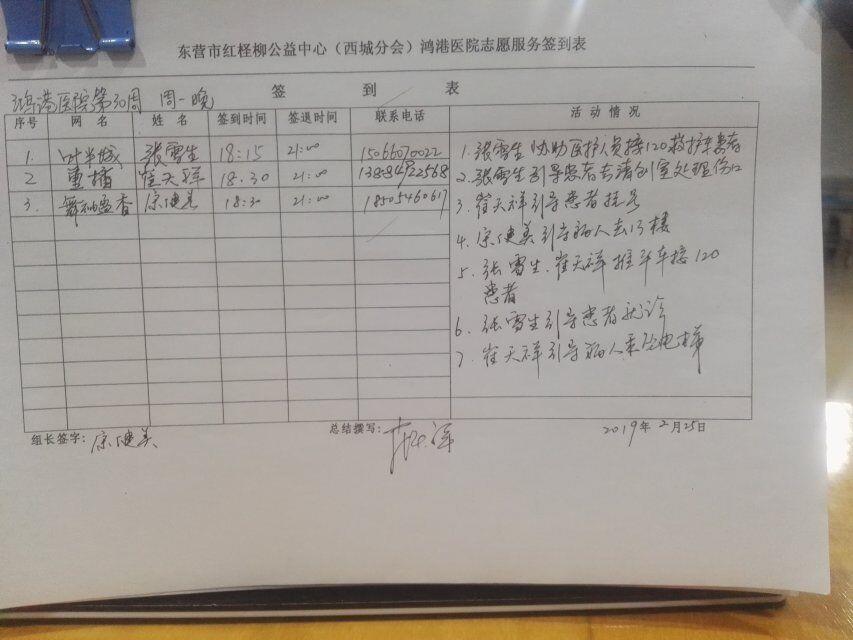 东营市红柽柳公益中心（西城分会）鸿港医院志愿服务签到表
签 到 表
鸿港医院第30周 周一晚
序号 网名 姓名 签到时间 签退时间 联系电话 活动情况
1. 叶半城 张雪生 18:15 21:00 15066070022
2 重楠 崔天祥 18.30 21:00 13884922568
3. 舞袖盈香 宗健美 18:30 21:00 18505460617
1. 张雪生协助医护人员接120救护车患者
2. 张雪生引导患者去清创室处理伤口
3. 崔天祥引导患者挂号
4. 宗健美引导病人去13楼
5. 张雪生.崔天祥推平车接120
患者
6. 张雪生引导患者就诊
7. 崔天祥引导病人乘坐电梯
组长签字：宗健美 总结撰写： 2019年2月25日